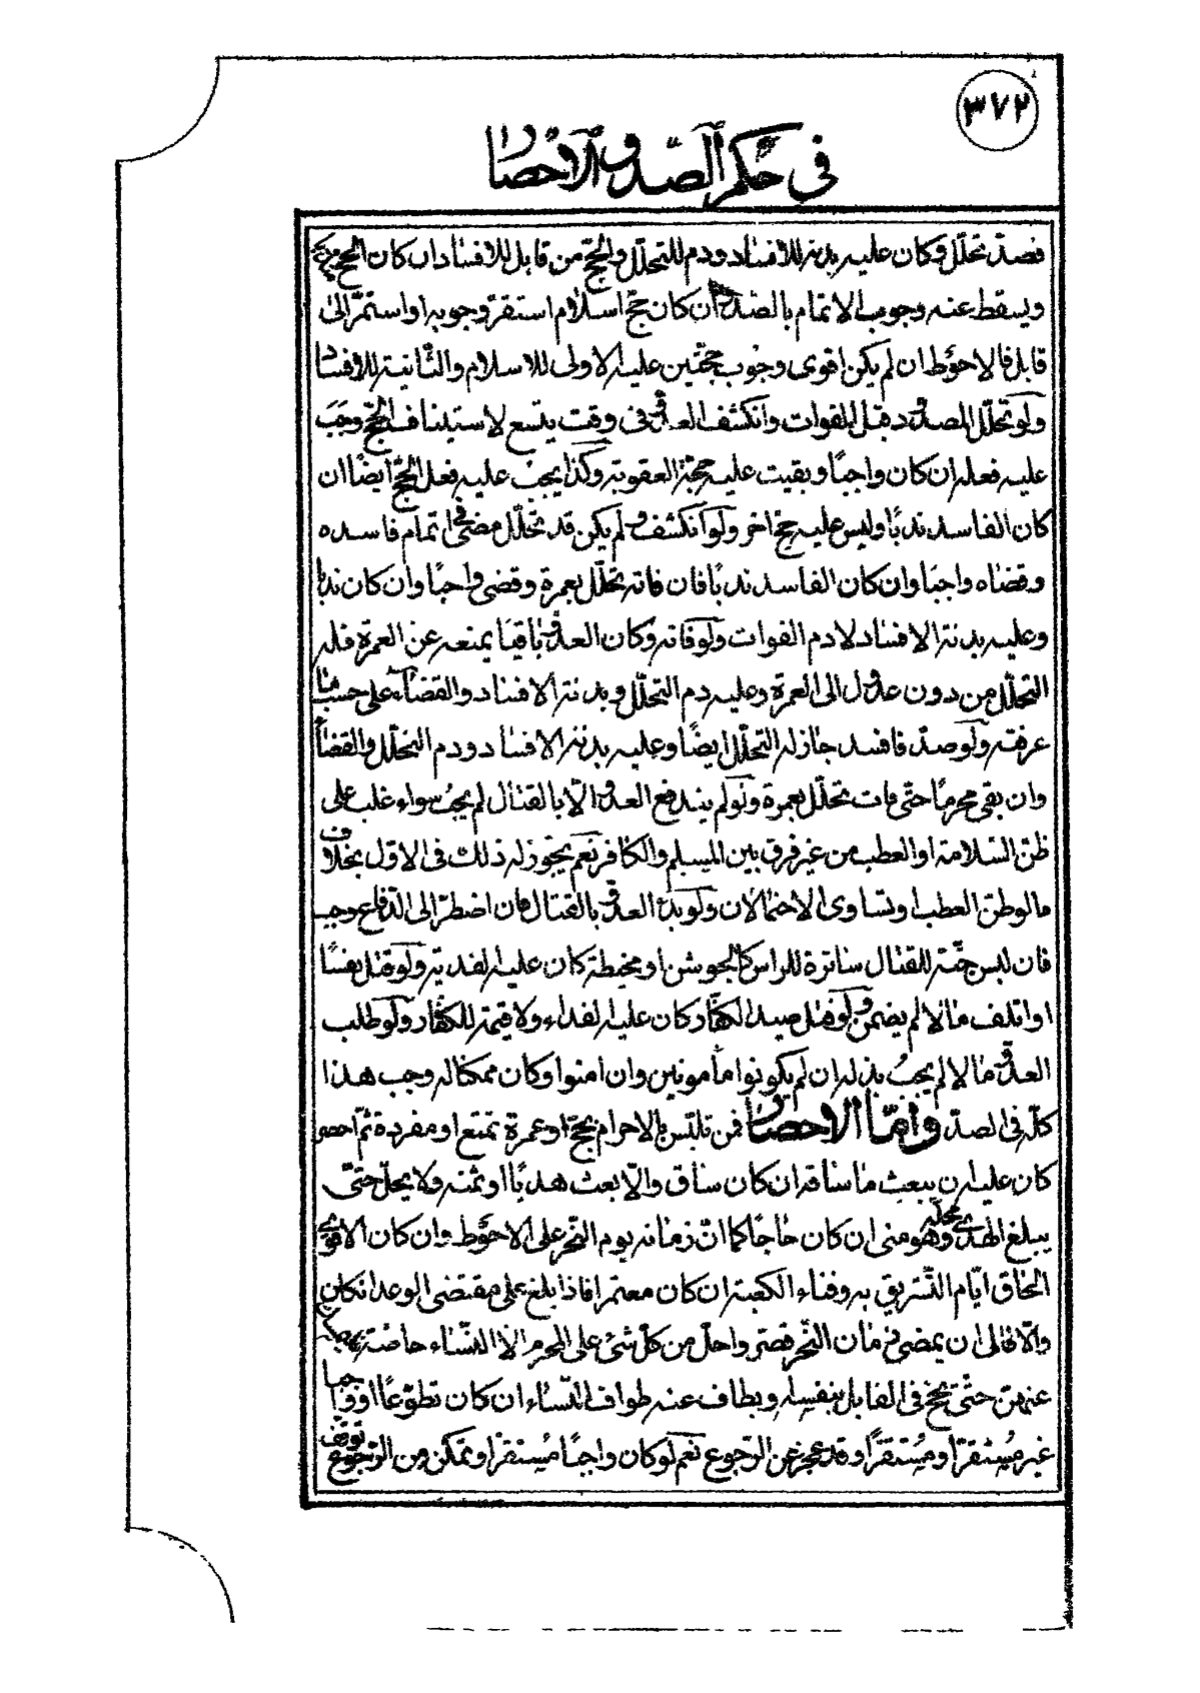 ٣٧٢
في حكم الصد والاحصار
فصدّ تحلّل وكان عليه بدنة للافساد ودم للتحلّل والحجّ من قابل للافساد ان كان الحج
ويسقط عنه وجوب الاتمام بالصدّ ان كان حجّ اسلام استقرّ وجوبه او استمرّ الى
قابل فالاحوط ان لم يكن اقوى وجوب حجّتين عليه الاولى للاسلام والثّانية للافساد
ولو تحلّل المصدود قبل الفوات وانكشف العدوّ في وقت يتسع لاستيناف الحجّ وجب
عليه فعله ان كان واجبًا وبقيت عليه حجّة العقوبة وكذا يجب عليه فعل الحجّ ايضًا ان
كان الفاسد ندبًا وليس عليه حج اخر ولو انكشف ولم يكن قد تحلّل مضى في اتمام فاسده
وقضاه واجبا وان كان الفاسد ندبًا فان فاته تحلّل بعمرة وقضى واجبًا وان كان ندبا
وعليه بدنة الافساد لا دم الفوات ولو فاته وكان العدوّ باقيا يمنعه عن العمرة فله
التحلّل من دون عدول الى العمرة وعليه دم التحلّل وبدنة الافساد والقضاء على حسب ما
عرفته ولو صدّ فافسد جاز له التحلّل ايضًا وعليه بدنة الافساد ودم التحلّل والقضاء
وان بقى محرمًا حتّى فات تحلّل بعمرة ولو لم يندفع العدوّ الّا بالقتال لم يجب سواء غلب على
ظنّ السّلامة او العطب من غير فرق بين المسلم والكافر نعم يجوز له ذلك في الاوّل بخلاف
ما لو ظنّ العطب او تساوى الاحتمالان ولو بدء العدوّ بالقتال فان اضطرّ الى الدّفاع وجب
فان لبس جنّة للقتال ساترة للراس كالجوشن او مخيطة كان عليه الفدية ولو قتل نفسًا
او اتلف مالا لم يضمن ولو قتل صيد الكفّار كان عليه الفداء ولا قيمة للكفّار ولو طلب
العدوّ مالا لم يجب بذله ان لم يكونوا مأمونين وان امنوا وكان ممكنا له وجب هذا
كلّه في الصدّ وامّا الاحصار فمن تلبّس بالاحرام بحجّ او عمرة تمتع او مفردة ثمّ احصر
كان عليه ان يبعث ما ساقه ان كان ساق والّا بعث هديًا او ثمنه ولا يحلّ حتّى
يبلغ الهدي محلّه وهو منى ان كان حاجًا كما انّ زمانه يوم النّحر على الاحوط وان كان الاقوى
الحاق ايّام التّشريق به وفناء الكعبة ان كان معتمرا فاذا بلغ على مقتضى الوعد ان كان
والّا فالى ان يمضي زمان النّحر قصّر واحلّ من كلّ شئ على المحرم الا النّساء خاصّة
عنهنّ حتّى يحج في القابل بنفسه ويطاف عنه طواف النّساء ان كان تطوّعًا او واجبا
غير مستقرّ او مستقرًّا وقد عجز عن الرّجوع نعم لو كان واجبًا مستقرًّا وتمكّن من الرّجوع توقف